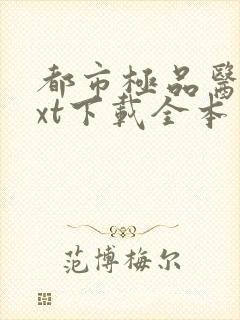 都市極品醫
xt下載全本
范博梅尔